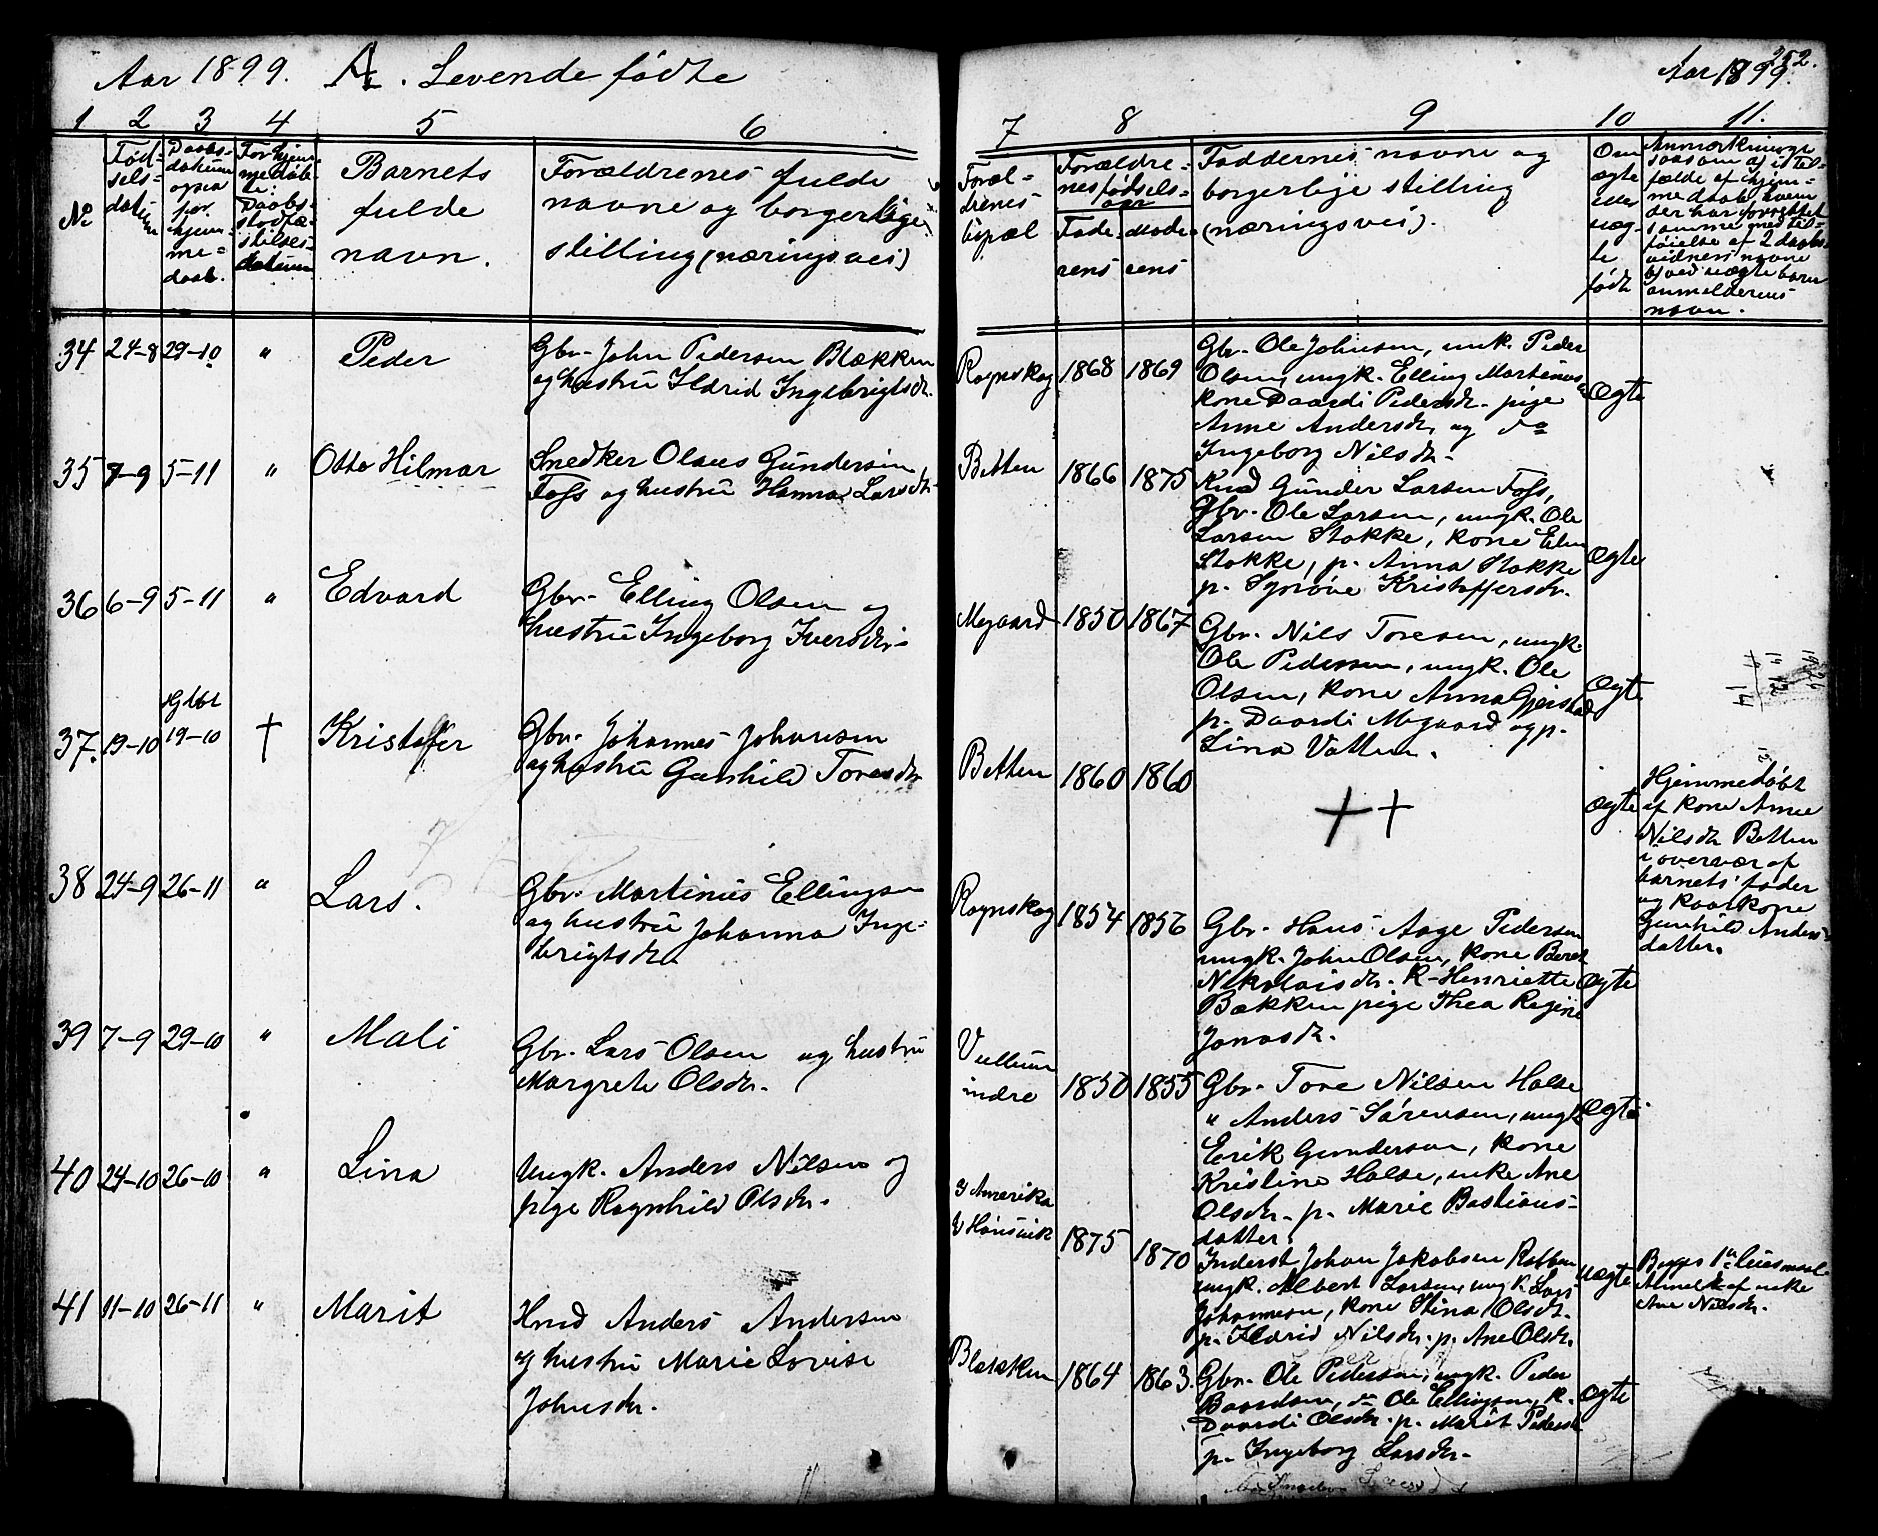 Aar 1899. A. Levende fødte
1 2 3 4 5 6
No
Fød-
sels-
datum
Daabs-
datum
ogsaa
for
hjem-
me-
daab.
For hjem-
medøb-
te:
Daabs-
stadfæ-
stelses-
datum
Barnets
fulde
navn.
Forældrenes fulde
navne og borgerlige
stilling (næringsvei)
34 24-8 29-10 " Peder
Gbr. John Pedersen Blækken
og hustru Ildrid Ingebrigtsdr.
35 7-9 5-11 " Otto Hilmar
Snedker Olaus Gundersen
Foss og hustru Hanna Larsdr.
36 6-9 5-11 " Edvard
Gbr. Elling Olsen og
hustru Ingeborg Iversdr.
37. 19-10 19-10 † Kristofer
Gbr. Johannes Johansen
og hustru Gunhild Toresdr.
38 24-9 26-11 " Lars.
Gbr. Martinus Ellingsen
og hustru Johanna Inge-
brigtsdr.
39 7-9 29-10 " Mali
Gbr. Lars Olsen og hustru
Margrete Olsdr.
40 24-10 26-10 " Lina
Ungk. Anders Nilsen og
pige Ragnhild Olsdr.
41 11-10 26-11 " Marit
Hmd Anders Andersen
og hustru Marie Lovise
Johnsdr.
252.
Aar 1899.
7 8 9 10 11.
Foræl-
drenes
bopæl
Forældre-
nes fødsels-
aar
Fade-
rens
Mode-
rens
Faddernes navne og
borgerlige stilling
(næringsvei).
Om
ægte
eller
uæg-
te
født
Anmærkninger
saasom a) i til-
fælde af hjem-
medaab, hvem
der har forrettet
samme med til-
føielse af 2 daabs-
vidners navne
b) ved uægte børn
anmelderens
navn.
Rognskog 1868 1869
Gbr. Ole Johnsen, enk. Peder
Olsen, ungk. Elling Martinus
kone Daardi Pedersdr. pige
Anne Andersdr. og do
Ingeborg Nilsdr.
Ægte
Betten 1866 1875
Kmd Gunder Larsen Foss,
Gbr. Ole Larsen, ungk. Ole
Larsen Stokke, kone Elen
Stokke, p. Anna Stokke
p. Synøve Kristoffersdr.
Ægte
Megaard 1850 1867
Gbr. Nils Toresen, ungk.
Ole Pedersen, ungk. Ole
Olsen, kone Anna Gjerstad
p. Daardi Megaard og p.
Lina Vatten.
Ægte
Betten 1860 1860 † †
ægte
Hjemmedøbt
af kone Anne
Nilsdr Betten
i overvær af
barnets fader
og kaarkone
Gunhild Anders-
datter.
Rognskog 1854 1856
Gbr. Hans Aage Pedersen
ungk. John Olsen, kone Beret
Nikolaisdr. K. Henriette
Bækken pige Thea Regine
Jonasdr.
Ægte
Vullum
indre
1850 1855
Gbr. Tore Nilsen Halse
" Anders Sørensen, ungk.
Erik Gundersen, kone
Kristine Halse, enke Ane
Olsdr. p. Marie Bastians-
datter.
Ægte
I Amerika
1875 1870
Inderst Johan Jakobsen
ungk. Albert Larsen, ungk. Lars
Johannesen, kone Stina Olsdr.
p. Ildrid Nilsdr. p. Ane Olsdr.
uægte
Begges 1ste leiermaal
Anmeldt af enke
Ane Nilsdr.
Blækken 1864 1863.
Gbr. Ole Pedersen, ungk. Peder
Baardsen, do Ole Ellingsen, K.
Daardi Olsdr. p. Marit Pedersdr
p. Ingeborg Larsdr.
Ægte